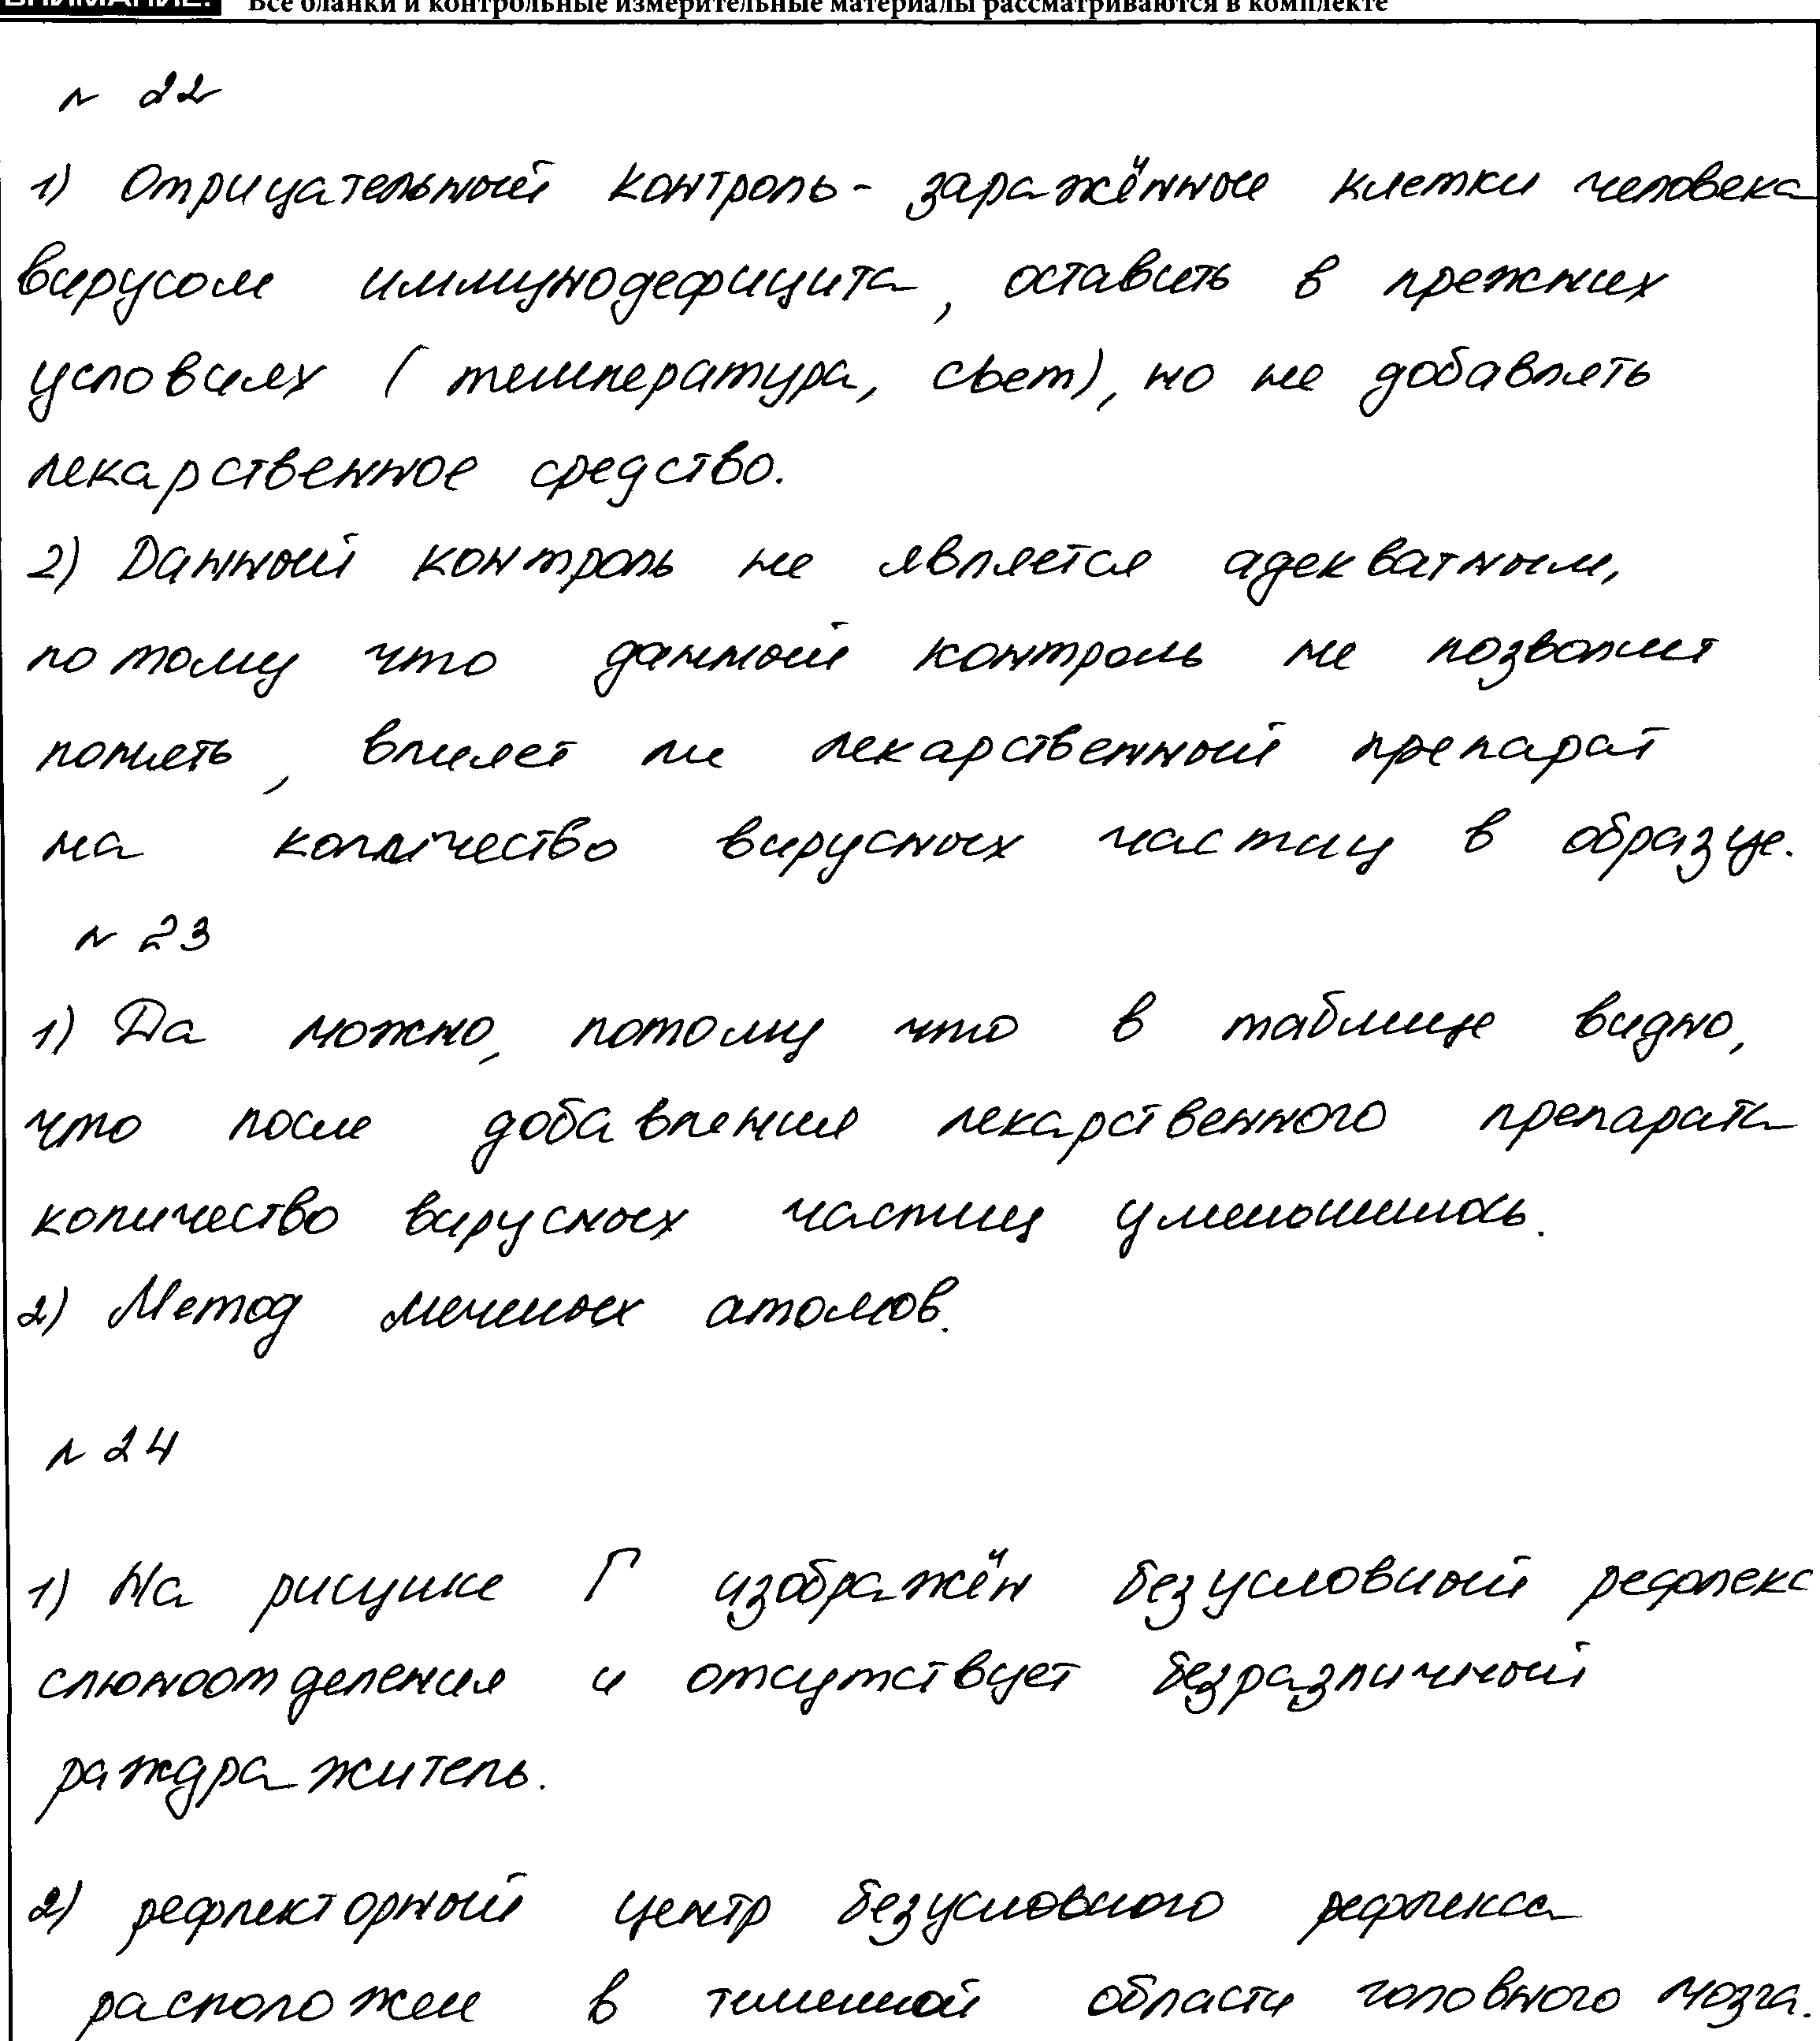 ВНИМАНИЕ! Все бланки и контрольные измерительные материалы рассматриваются в комплекте
n 22
1) Отрицательный контроль - заражённые клетки человека
вирусом иммунодефицита, оставить в прежних
условиях (температура, свет), но не добавлять
лекарственное средство.
2) Данный контроль не является адекватным,
потому что данный контроль не позволит
понять, влияет ли лекарственный препарат
на количество вирусных частиц в образце.
n 23
1) Да можно, потому что в таблице видно,
что после добавления лекарственного препарата
количество вирусных частиц уменьшилось.
2) Метод меченых атомов.
n 24
1) На рисунке Г изображён безусловный рефлекс
слюноотделения и отсутствует безразличный
раждражитель.
2) рефлекторный центр безусловного рефлекса
расположен в теменной области головного мозга.